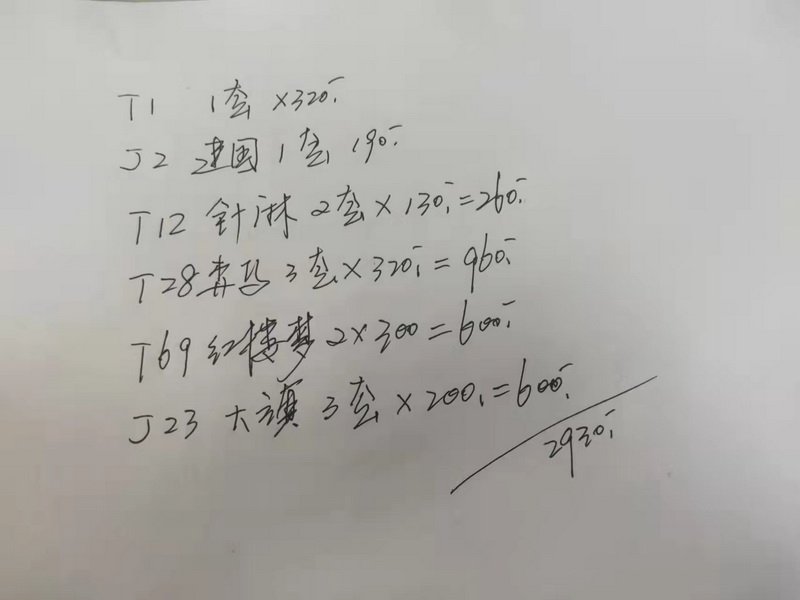 T1 1套 ×320.-
J2 建国 1套 190.-
T12 针麻 2套×130.-=260.-
T28奔马 3套×320.-=960.-
T69 红楼梦 2×300=600.-
J23 大旗 3套×200.-=600.-
2930.-